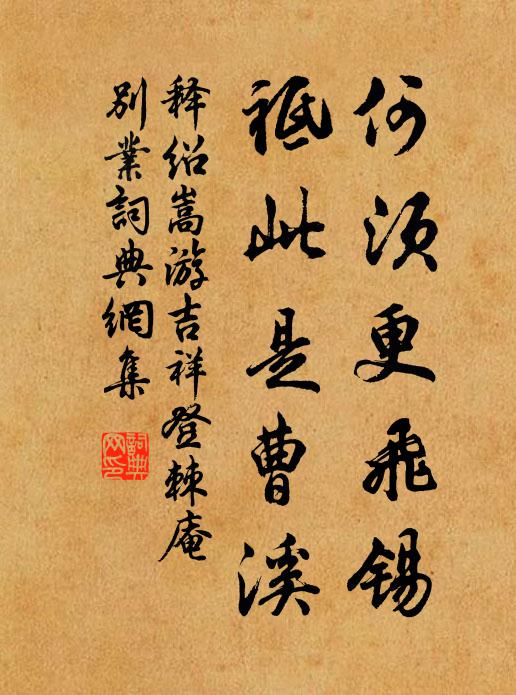 何須更飛錫
祗此是曹溪
释绍嵩游吉祥登棘庵
別業詞典網集
詞典網印